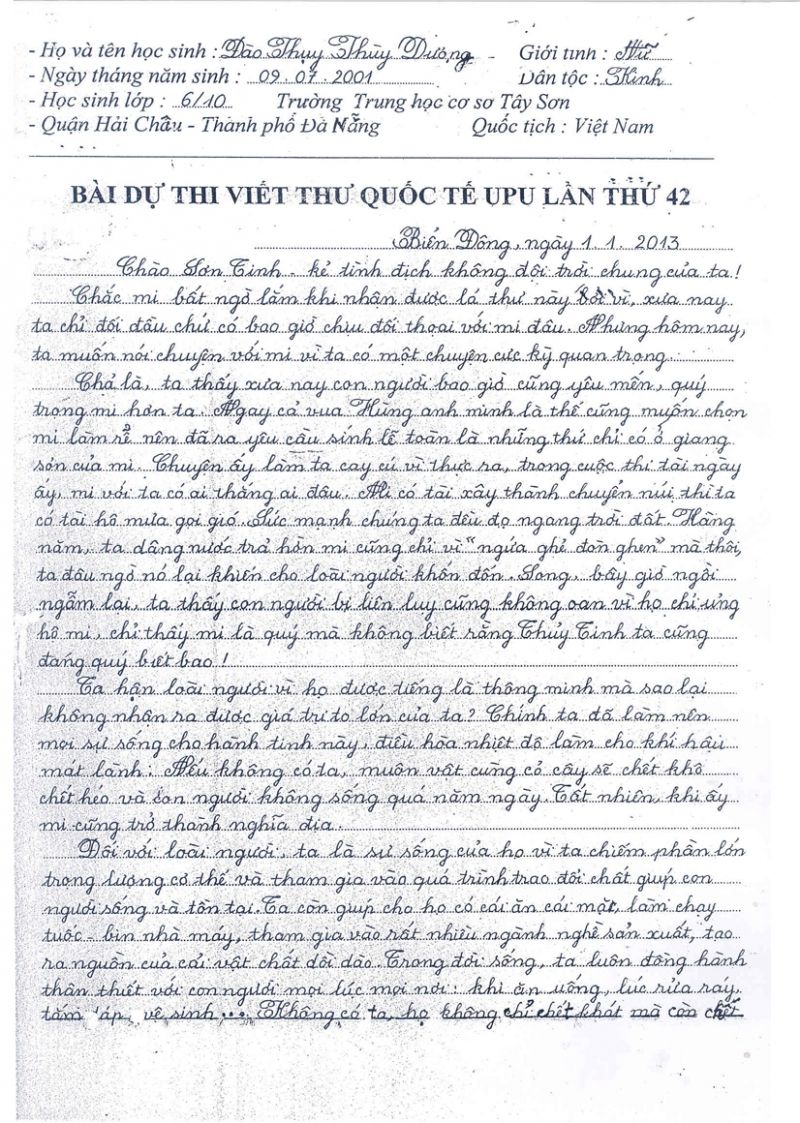 - Họ và tên học sinh : Đào Thụy Thùy Dương - Giới tính : Nữ
- Ngày tháng năm sinh : 09.07.2001 Dân tộc : Kinh
- Học sinh lớp : 6/10 Trường Trung học cơ sở Tây Sơn
- Quận Hải Châu - Thành phố Đà Nẵng Quốc tịch : Việt Nam
BÀI DỰ THI VIẾT THƯ QUỐC TẾ UPU LẦN THỨ 42
Biển Đông, ngày 1.1.2013
Chào Sơn Tinh - kẻ tình địch không đội trời chung của ta!
Chắc mi bất ngờ lắm khi nhận được lá thư này bởi vì, xưa nay
ta chỉ đối đầu chứ có bao giờ chịu đối thoại với mi đâu. Nhưng hôm nay,
ta muốn nói chuyện với mi vì ta có một chuyện cực kỳ quan trọng.
Chả là, ta thấy xưa nay con người bao giờ cũng yêu mến, quý
trọng mi hơn ta. Ngay cả vua Hùng anh minh là thế cũng muốn chọn
mi làm rể nên đã ra yêu cầu sính lễ toàn là những thứ chỉ có ở giang
sơn của mi. Chuyện ấy làm ta cay cú vì thực ra, trong cuộc thi tài ngày
ấy, mi với ta có ai thắng ai đâu. Mi có tài xây thành chuyển núi thì ta
có tài hô mưa gọi gió. Sức mạnh chúng ta đều đọ ngang trời đất. Hàng
năm, ta dâng nước trả hờn mi cũng chỉ vì "ngứa ghẻ đòn ghen" mà thôi,
ta đâu ngờ nó lại khiến cho loài người khốn đốn. Song, bây giờ ngồi
ngẫm lại, ta thấy con người bị liên lụy cũng không oan vì họ chỉ ủng
hộ mi, chỉ thấy mi là quý mà không biết rằng Thủy Tinh ta cũng
đáng quý biết bao!
Ta hận loài người vì họ được tiếng là thông minh mà sao lại
không nhận ra được giá trị to lớn của ta? Chính ta đã làm nên
mọi sự sống cho hành tinh này, điều hòa nhiệt độ làm cho khí hậu
mát lành. Nếu không có ta, muôn vật cùng cỏ cây sẽ chết khô
chết héo và con người không sống quá năm ngày. Tất nhiên, khi ấy
mi cũng trở thành nghĩa địa.
Đối với loài người, ta là sự sống của họ vì ta chiếm phần lớn
trọng lượng cơ thể và tham gia vào quá trình trao đổi chất giúp con
người sống và tồn tại. Ta còn giúp cho họ có cái ăn cái mặt, làm chạy
tuốc - bin nhà máy, tham gia vào rất nhiều ngành nghề sản xuất, tạo
ra nguồn của cải vật chất dồi dào. Trong đời sống, ta luôn đồng hành
thân thiết với con người mọi lúc mọi nơi: khi ăn uống, lúc rửa ráy,
tắm táp, vệ sinh... Không có ta, họ không chỉ chết khát mà còn chết